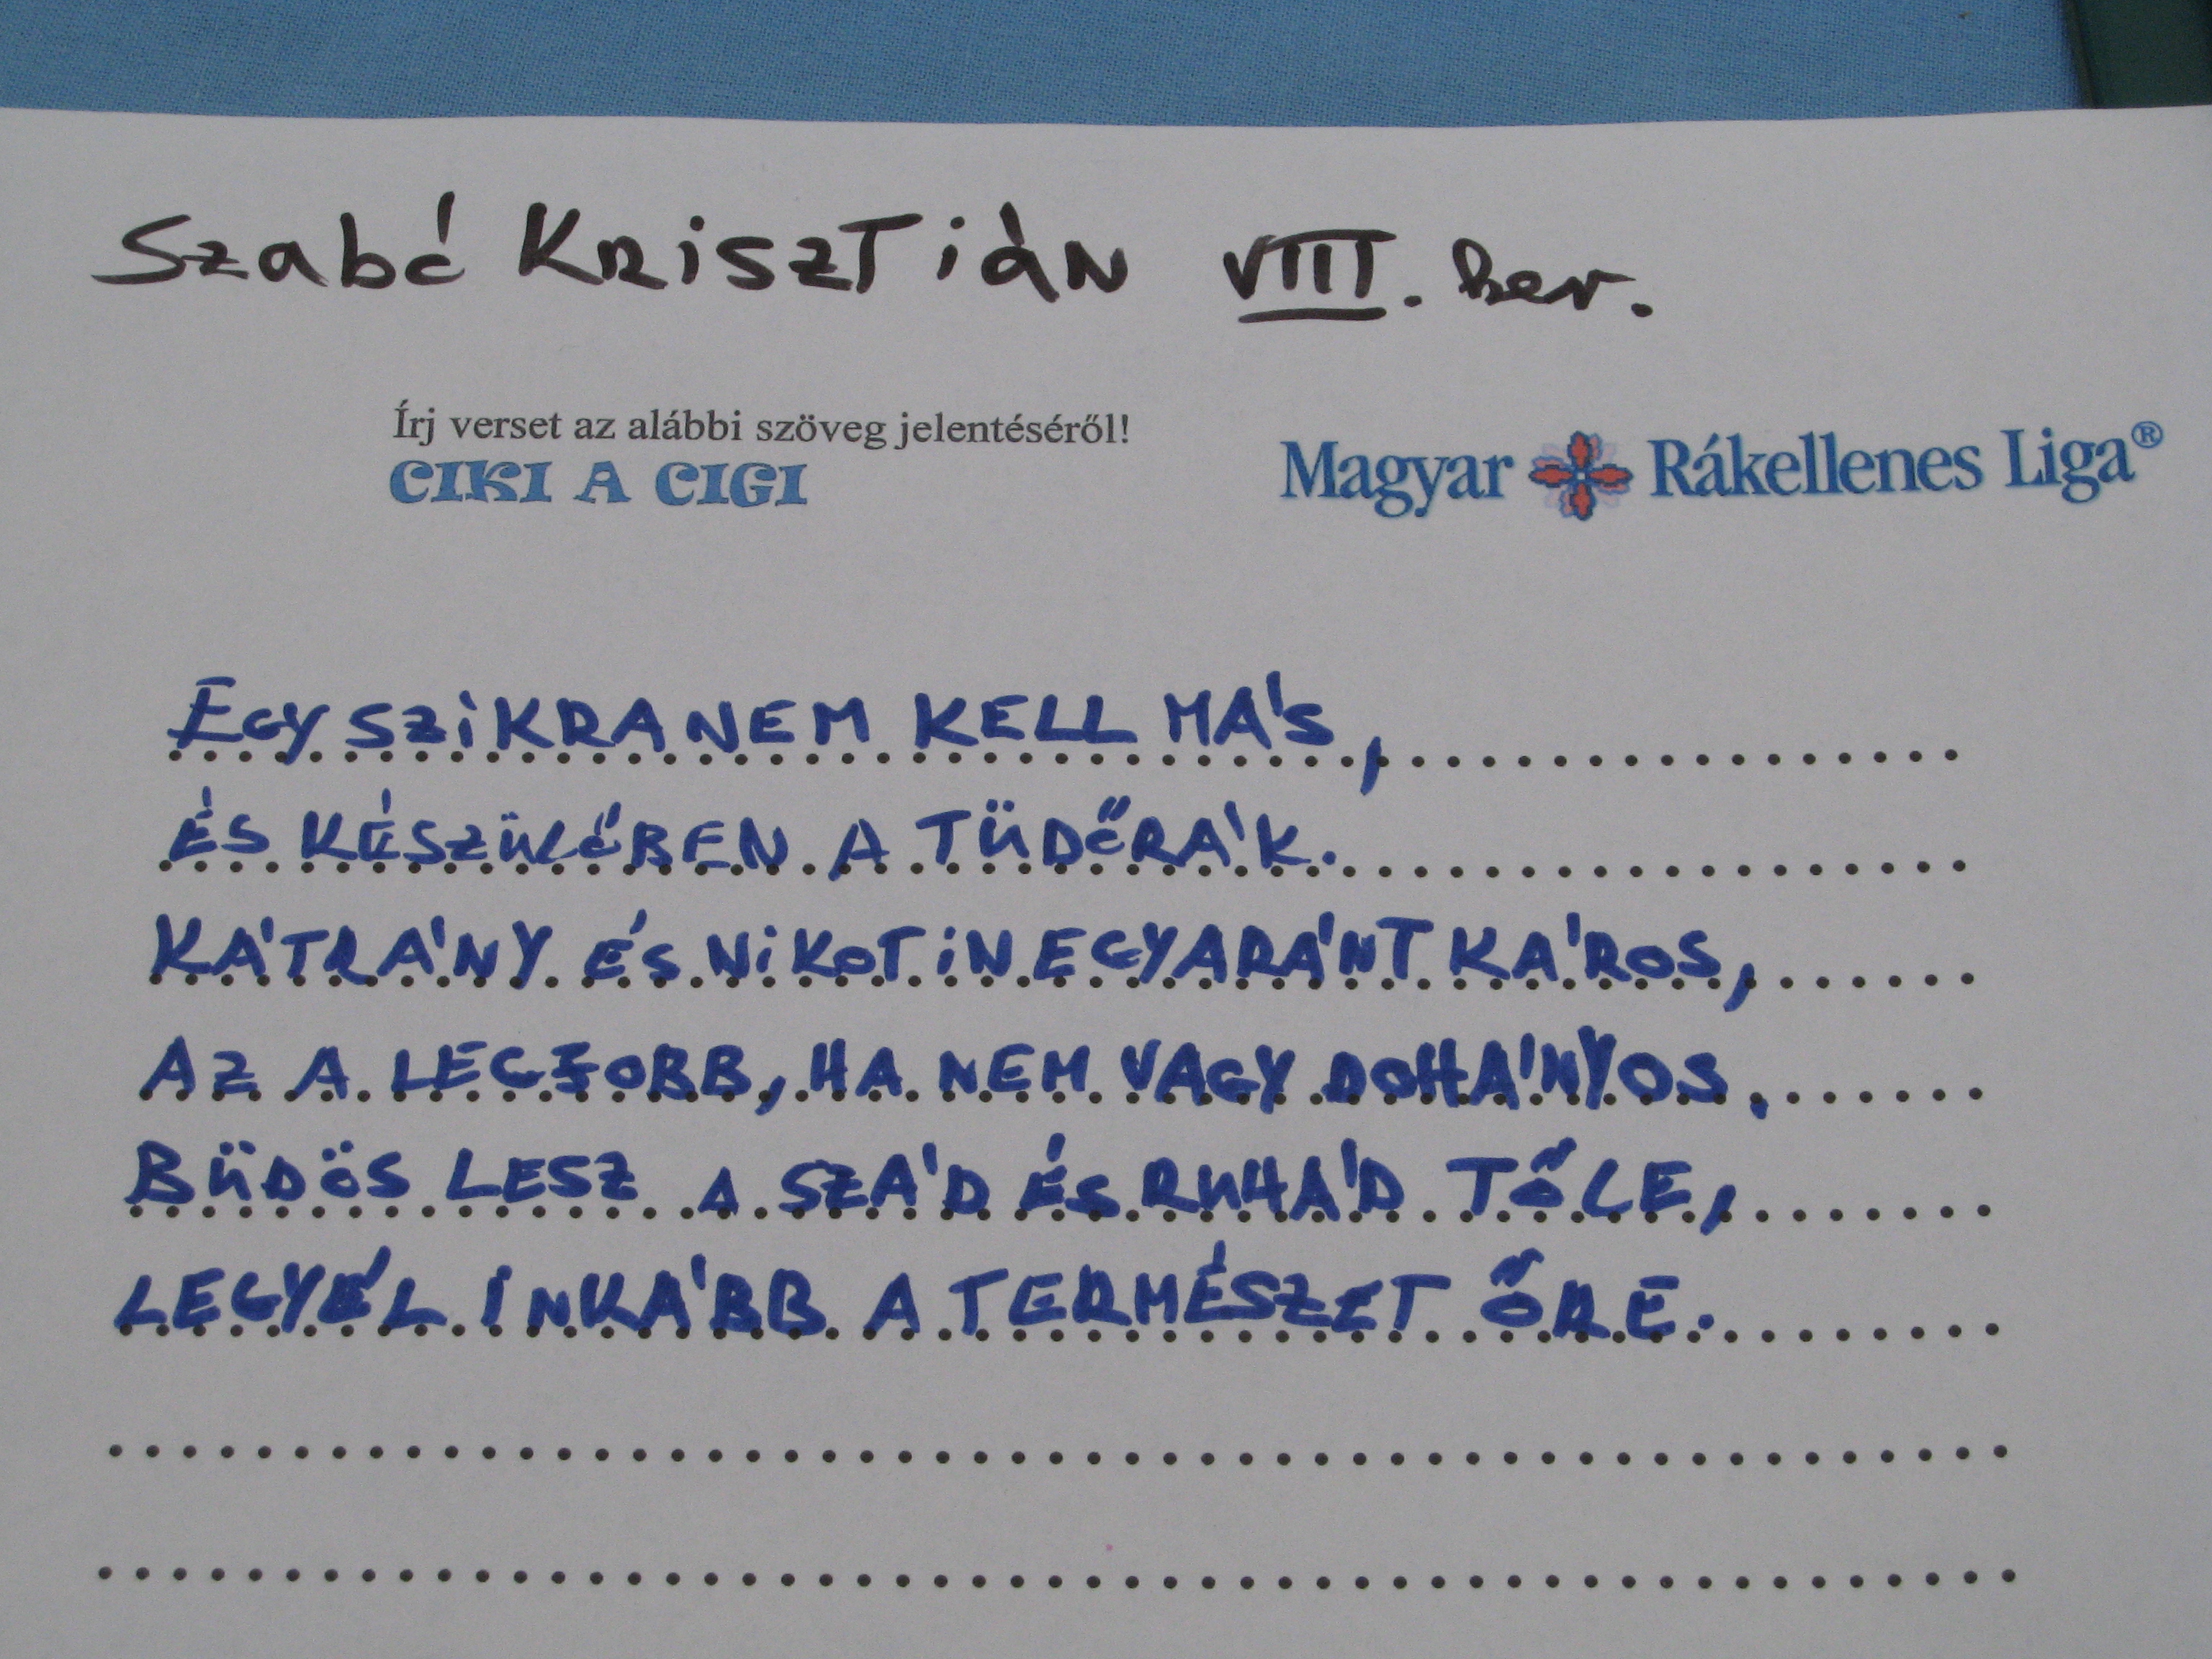 Szabó Krisztián VIII. ker.
Írj verset az alábbi szöveg jelentéséről!
CIKI A CIGI
Magyar Rákellenes Liga®
EGY SZIKRA NEM KELL MÁS,
ÉS KÉSZÜLŐBEN A TÜDŐRÁK.
KÁTRÁNY ÉS NIKOTIN EGYARÁNT KÁROS,
AZ A LEGJOBB, HA NEM VAGY DOHÁNYOS,
BÜDÖS LESZ A SZÁD ÉS RUHÁD TŐLE,
LEGYÉL INKÁBB A TERMÉSZET ŐRE.